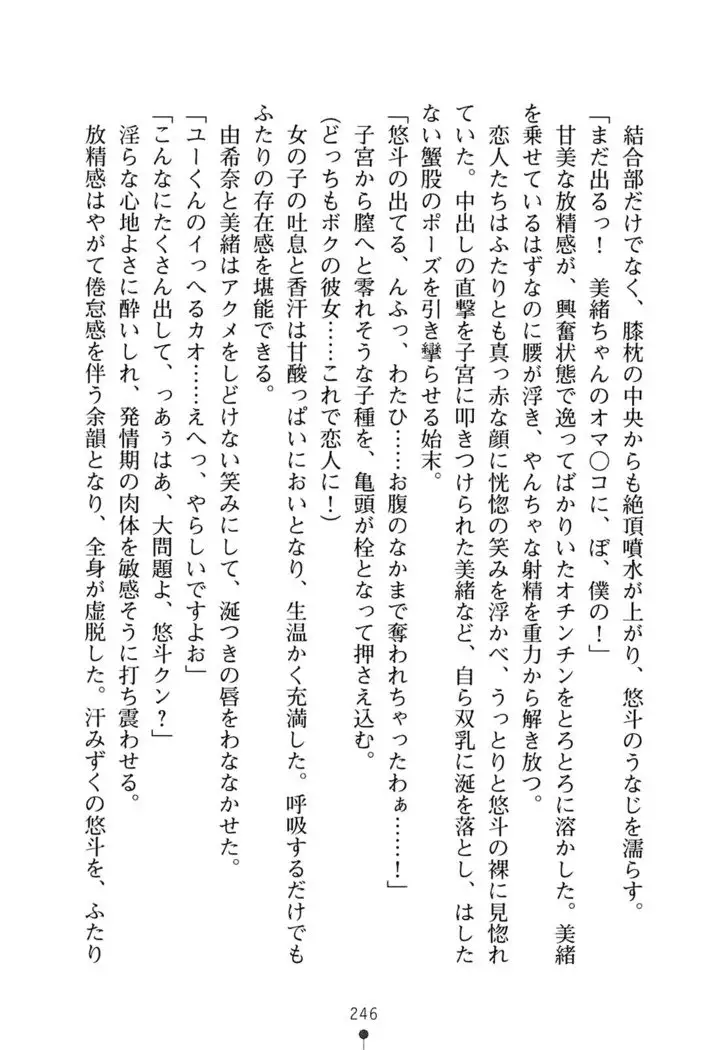 結合部だけでなく、膝枕の中央からも絶頂噴水が上がり、悠斗のうなじを濡らす。
「まだ出るっ！　美緒ちゃんのオマ〇コに、ぼ、僕の！」
甘美な放精感が、興奮状態で逸ってばかりいたオチンチンをとろとろに溶かした。美緒
を乗せているはずなのに腰が浮き、やんちゃな射精を重力から解き放つ。
恋人たちはふたりとも真っ赤な顔に恍惚の笑みを浮かべ、うっとりと悠斗の裸に見惚れ
ていた。中出しの直撃を子宮に叩きつけられた美緒など、自ら双乳に涎を落とし、はした
ない蟹股のポーズを引き攣らせる始末。
「悠斗の出てる、んふっ、わたひ……お腹のなかまで奪われちゃったわぁ……！」
子宮から膣へと零れそうな子種を、亀頭が栓となって押さえ込む。
（どっちもボクの彼女……これで恋人に！）
女の子の吐息と香汗は甘酸っぱいにおいとなり、生温かく充満した。呼吸するだけでも
ふたりの存在感を堪能できる。
由希奈と美緒はアクメをしどけない笑みにして、涎つきの唇をわななかせた。
「ユーくんのイっへるカオ……えへっ、やらしいですよお」
「こんなにたくさん出して、っあぅはあ、大問題よ、悠斗クン？」
淫らな心地よさに酔いしれ、発情期の肉体を敏感そうに打ち震わせる。
放精感はやがて倦怠感を伴う余韻となり、全身が虚脱した。汗みずくの悠斗を、ふたり
246